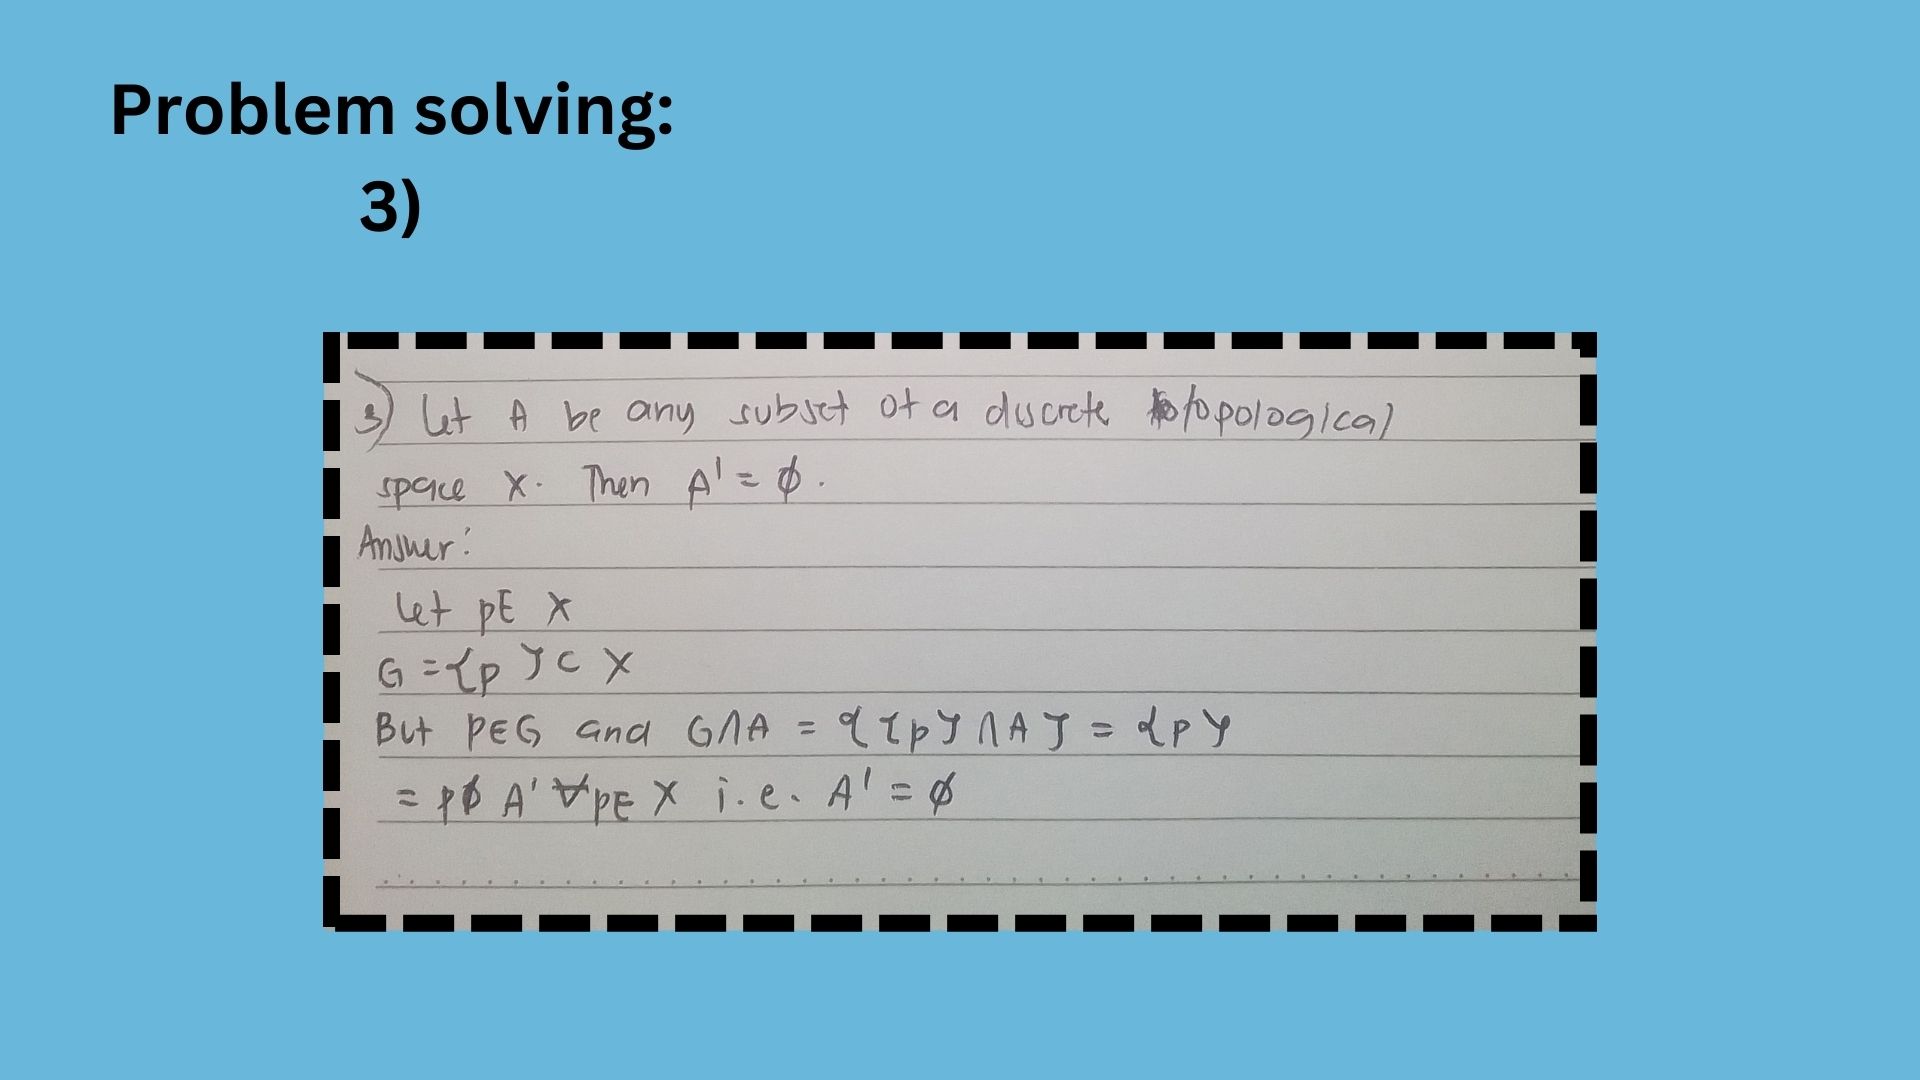 Problem solving:
3)
3) Let A be any subset of a discrete topological
space X. Then A' = ϕ.
Answer:
Let p∈ X
G = {p} ⊂ X
But p∈G and G∩A = {{p} ∩ A} = {p}
= p∉ A' ∀p∈ X i.e. A' = ϕ